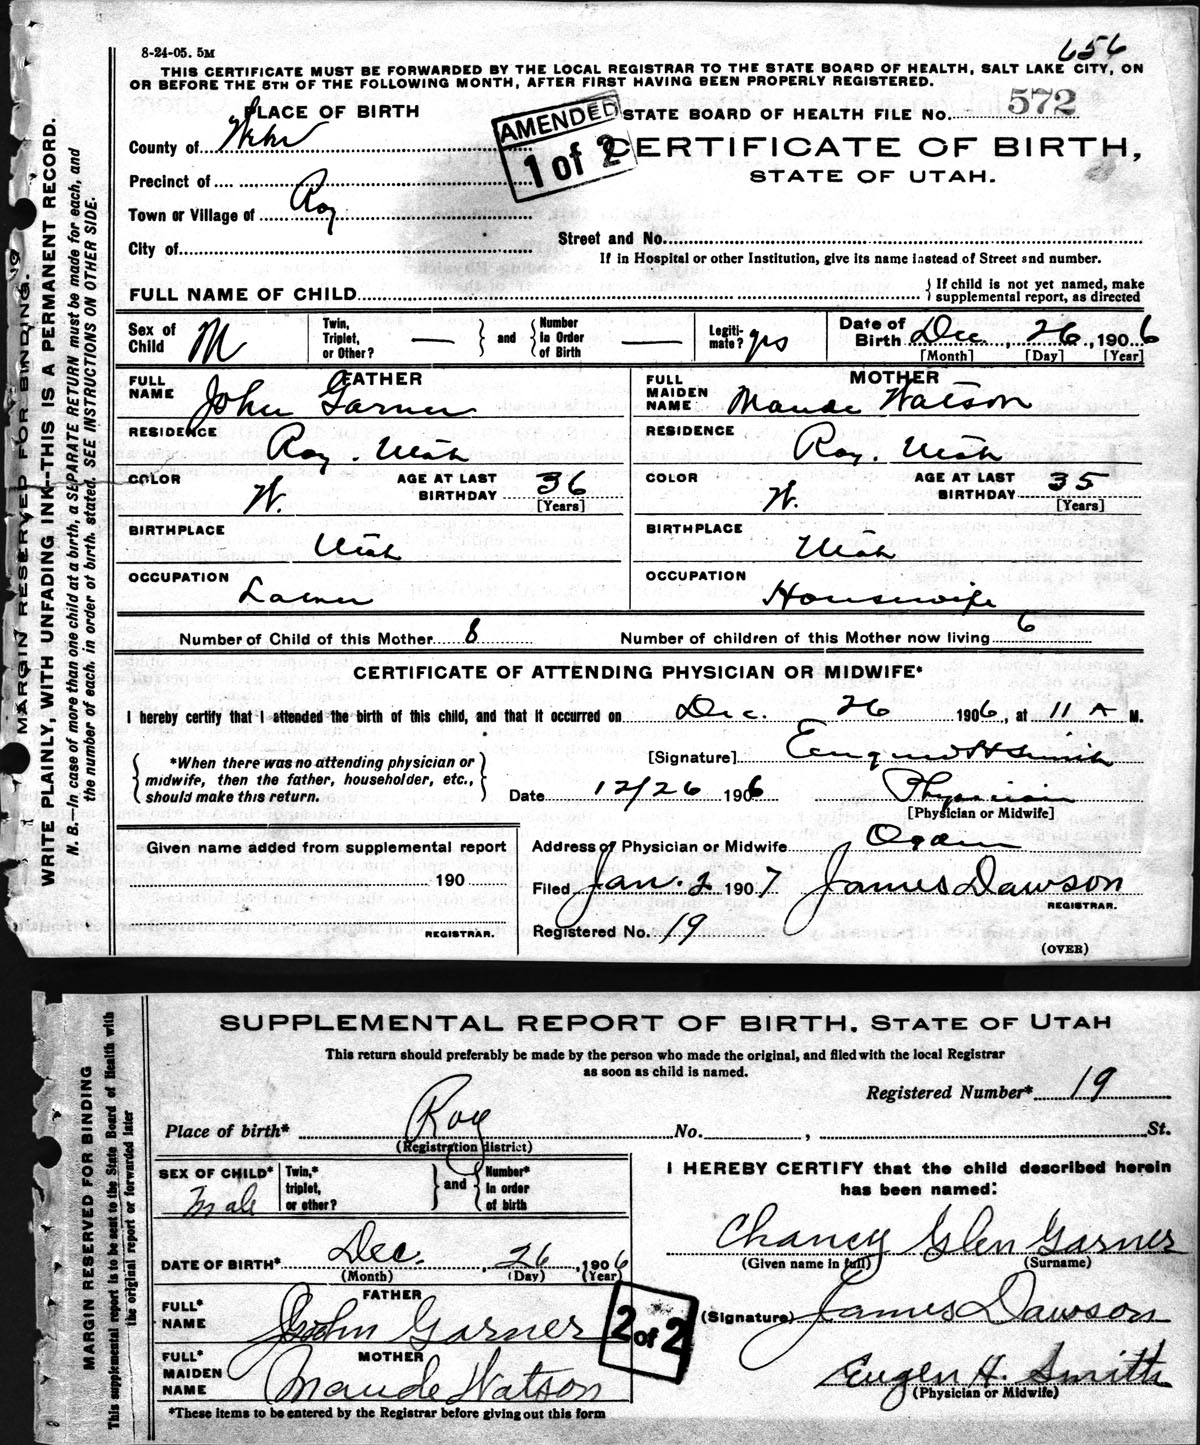 8-24-05. 5M
656
THIS CERTIFICATE MUST BE FORWARDED BY THE LOCAL REGISTRAR TO THE STATE BOARD OF HEALTH, SALT LAKE CITY, ON
OR BEFORE THE 5TH OF THE FOLLOWING MONTH, AFTER FIRST HAVING BEEN PROPERLY REGISTERED.
PLACE OF BIRTH
AMENDED
1 of 2
STATE BOARD OF HEALTH FILE No. 572
County of
CERTIFICATE OF BIRTH,
STATE OF UTAH.
Precinct of
Town or Village of Roy
City of
Street and No.
If in Hospital or other Institution, give its name instead of Street and number.
FULL NAME OF CHILD
If child is not yet named, make
supplemental report, as directed
Sex of Child M
Twin, Triplet, or Other? — and Number in Order of Birth —
Legiti-mate? yes
Date of Birth Dec , 26 , 1906
[Month] [Day] [Year]
FATHER
FULL NAME John Garner
MOTHER
FULL MAIDEN NAME Maude Watson
RESIDENCE Roy. Utah
RESIDENCE Roy. Utah
COLOR W. AGE AT LAST BIRTHDAY 36 [Years]
COLOR W. AGE AT LAST BIRTHDAY 35 [Years]
BIRTHPLACE Utah
BIRTHPLACE Utah
OCCUPATION
OCCUPATION Housewife
Number of Child of this Mother 8 Number of children of this Mother now living 6
CERTIFICATE OF ATTENDING PHYSICIAN OR MIDWIFE*
I hereby certify that I attended the birth of this child, and that it occurred on Dec. 26 1906, at 11 A M.
*When there was no attending physician or
midwife, then the father, householder, etc.,
should make this return.
[Signature] H Smith
Date 12/26 1906 Physician
[Physician or Midwife]
Given name added from supplemental report
190
REGISTRAR.
Address of Physician or Midwife Ogden
Filed Jan. 2 1907 James Dawson
REGISTRAR.
Registered No. 19
(OVER)
MARGIN RESERVED FOR BINDING.
WRITE PLAINLY, WITH UNFADING INK--THIS IS A PERMANENT RECORD.
N. B.—In case of more than one child at a birth, a SEPARATE RETURN must be made for each, and
the number of each, in order of birth, stated. SEE INSTRUCTIONS ON OTHER SIDE.
SUPPLEMENTAL REPORT OF BIRTH, STATE OF UTAH
This return should preferably be made by the person who made the original, and filed with the local Registrar
as soon as child is named.
Registered Number* 19
Place of birth* Roy No. , St.
(Registration district)
SEX OF CHILD* Male
Twin,* triplet, or other? and Number* in order of birth
I HEREBY CERTIFY that the child described herein
has been named:
Chancy Glen Garner
(Given name in full) (Surname)
DATE OF BIRTH* Dec. , 26 , 1906
(Month) (Day) (Year)
FATHER
FULL* NAME John Garner
2 of 2
(Signature) James Dawson
MOTHER
FULL* MAIDEN NAME Maude Watson
Eugen H. Smith
(Physician or Midwife)
*These items to be entered by the Registrar before giving out this form
MARGIN RESERVED FOR BINDING
This supplemental report is to be sent to the State Board of Health with
the original report or forwarded later